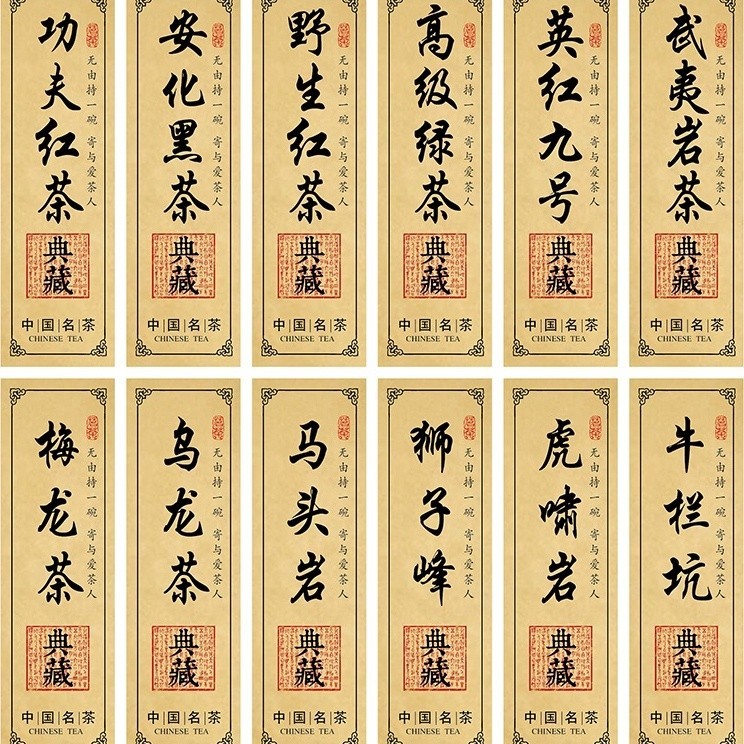 功夫红茶
无由持一碗 寄与爱茶人
典藏
中|国|名|茶
CHINESE TEA
安化黑茶
无由持一碗 寄与爱茶人
典藏
中|国|名|茶
CHINESE TEA
野生红茶
无由持一碗 寄与爱茶人
典藏
中|国|名|茶
CHINESE TEA
高级绿茶
无由持一碗 寄与爱茶人
典藏
中|国|名|茶
CHINESE TEA
英红九号
无由持一碗 寄与爱茶人
典藏
中|国|名|茶
CHINESE TEA
武夷岩茶
无由持一碗 寄与爱茶人
典藏
中|国|名|茶
CHINESE TEA
梅龙茶
无由持一碗 寄与爱茶人
典藏
中|国|名|茶
CHINESE TEA
乌龙茶
无由持一碗 寄与爱茶人
典藏
中|国|名|茶
CHINESE TEA
马头岩
无由持一碗 寄与爱茶人
典藏
中|国|名|茶
CHINESE TEA
狮子峰
无由持一碗 寄与爱茶人
典藏
中|国|名|茶
CHINESE TEA
虎啸岩
无由持一碗 寄与爱茶人
典藏
中|国|名|茶
CHINESE TEA
牛栏坑
无由持一碗 寄与爱茶人
典藏
中|国|名|茶
CHINESE TEA